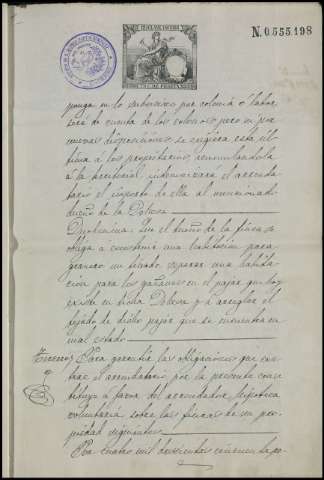 N.0.555.198
ponga en lo subcesivo por colonia o labor
sea de cuenta de los colonos pero si por
nuevas disposiciones se exigiera esta
a los propietarios, acumulandola
á la territorial, indemnizará el arrenda-
tario el importe de ella al mencionado
dueño de la Dehesa
Duodécima. Que el dueño de la finca se
obliga á construir una habitación para
granero un tinado separar una habita-
ción para los gañanes en el pajar que hoy
existe en dicha Dehesa y á arreglar el
tejado de dicho pajar que se encuentra en
mal estado
Tercero, Para garantir las obligaciones que con-
trae el arrendatario por la presente cons-
tituye á favor del arrendador hipoteca
voluntaria sobre las fincas de su pro-
piedad siguientes
Por cuatro mil doscientas cincuenta pe-